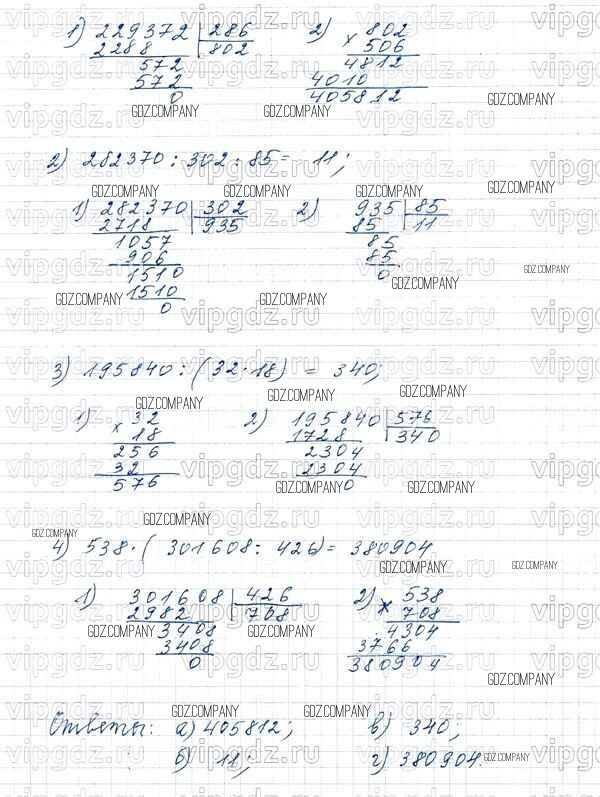 1) 229372 | 286 2) 802
2288 802 × 506
572 4812
572 4010
0 405812
2) 282370 : 302 : 85 = 11;
1) 282370 | 302 2) 935 | 85
2718 935 85 11
1057 85
906 85
1510 0
1510
0
3) 195840 : (32 · 18) = 340;
1) × 32 2) 195840 | 576
18 1728 340
256 2304
32 2304
576 0
4) 538 · (301608 : 426) = 380904
1) 301608 | 426 2) × 538
2982 708 708
3408 4304
3408 3766
0 380904
Ответы: а) 405812; в) 340;
б) 11; г) 380904.
GDZ.COMPANY
vipgdz.ru